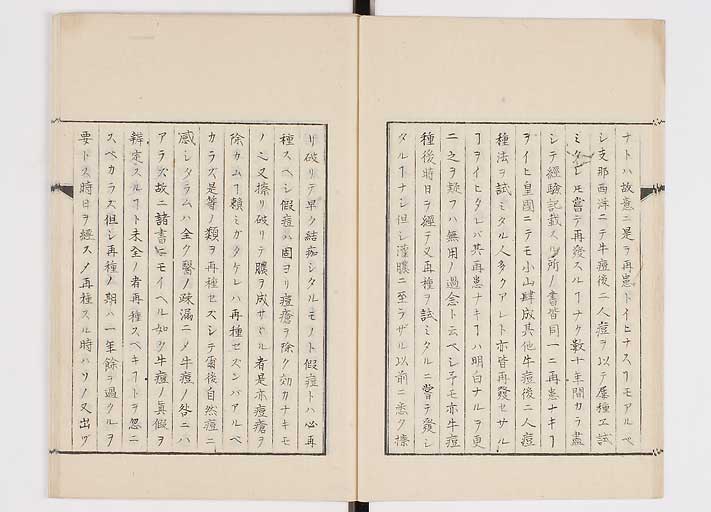 ナトハ故意ニ是ヲ再患トイヒナスヿモアルベ
シ支那西洋ニテ牛痘後ニ人痘ヲ以テ屡種エ試
ミタレ𪜈嘗テ再發スルヿナク數十年間カラ盡
シテ經驗記裁スル所ノ書皆同一ニ再患ナキヿ
ヲイヒ皇國ニテモ小山肆成其他牛痘後ニ人痘
種法ヲ試ミタル人多クアレト亦皆再發セサル
ヿヲイヒタレバ其再患ナキヿハ明白ナルヲ更
ニ之ヲ疑フハ無用ノ過念ト云ベシ予モ亦牛痘
種後時日ヲ經テ又再種ヲ試ミタルニ嘗テ發シ
タルヿナシ但シ灌膿ニ至ラザル以前ニ悉ク搽
リ破リテ早ク結痂シタルモノト假痘トハ必再
種スベシ假痘ハ固ヨリ痘瘡ヲ除ク効カナキモ
ノ之又搽リ破リテ膿ヲ成サヾル者是亦痘瘡ヲ
除カムヿ賴ミガタケレハ再種セズンバアルベ
カラズ是等ノ類ヲ再種セスシテ爾後自然痘ニ
感シタラムハ全ク醫ノ疎漏ニメ牛痘ノ咎ニハ
アラズ故ニ諸書ニモイヘル如ク牛痘ノ眞假ヲ
辨定スルヿト未全ノ者再種スベキヿトヲ忽ニ
スベカラス但シ再種ノ期ハ一年餘ヲ過クルヲ
要トス時日ヲ經スノ再種スル時ハソノ又出ヅ